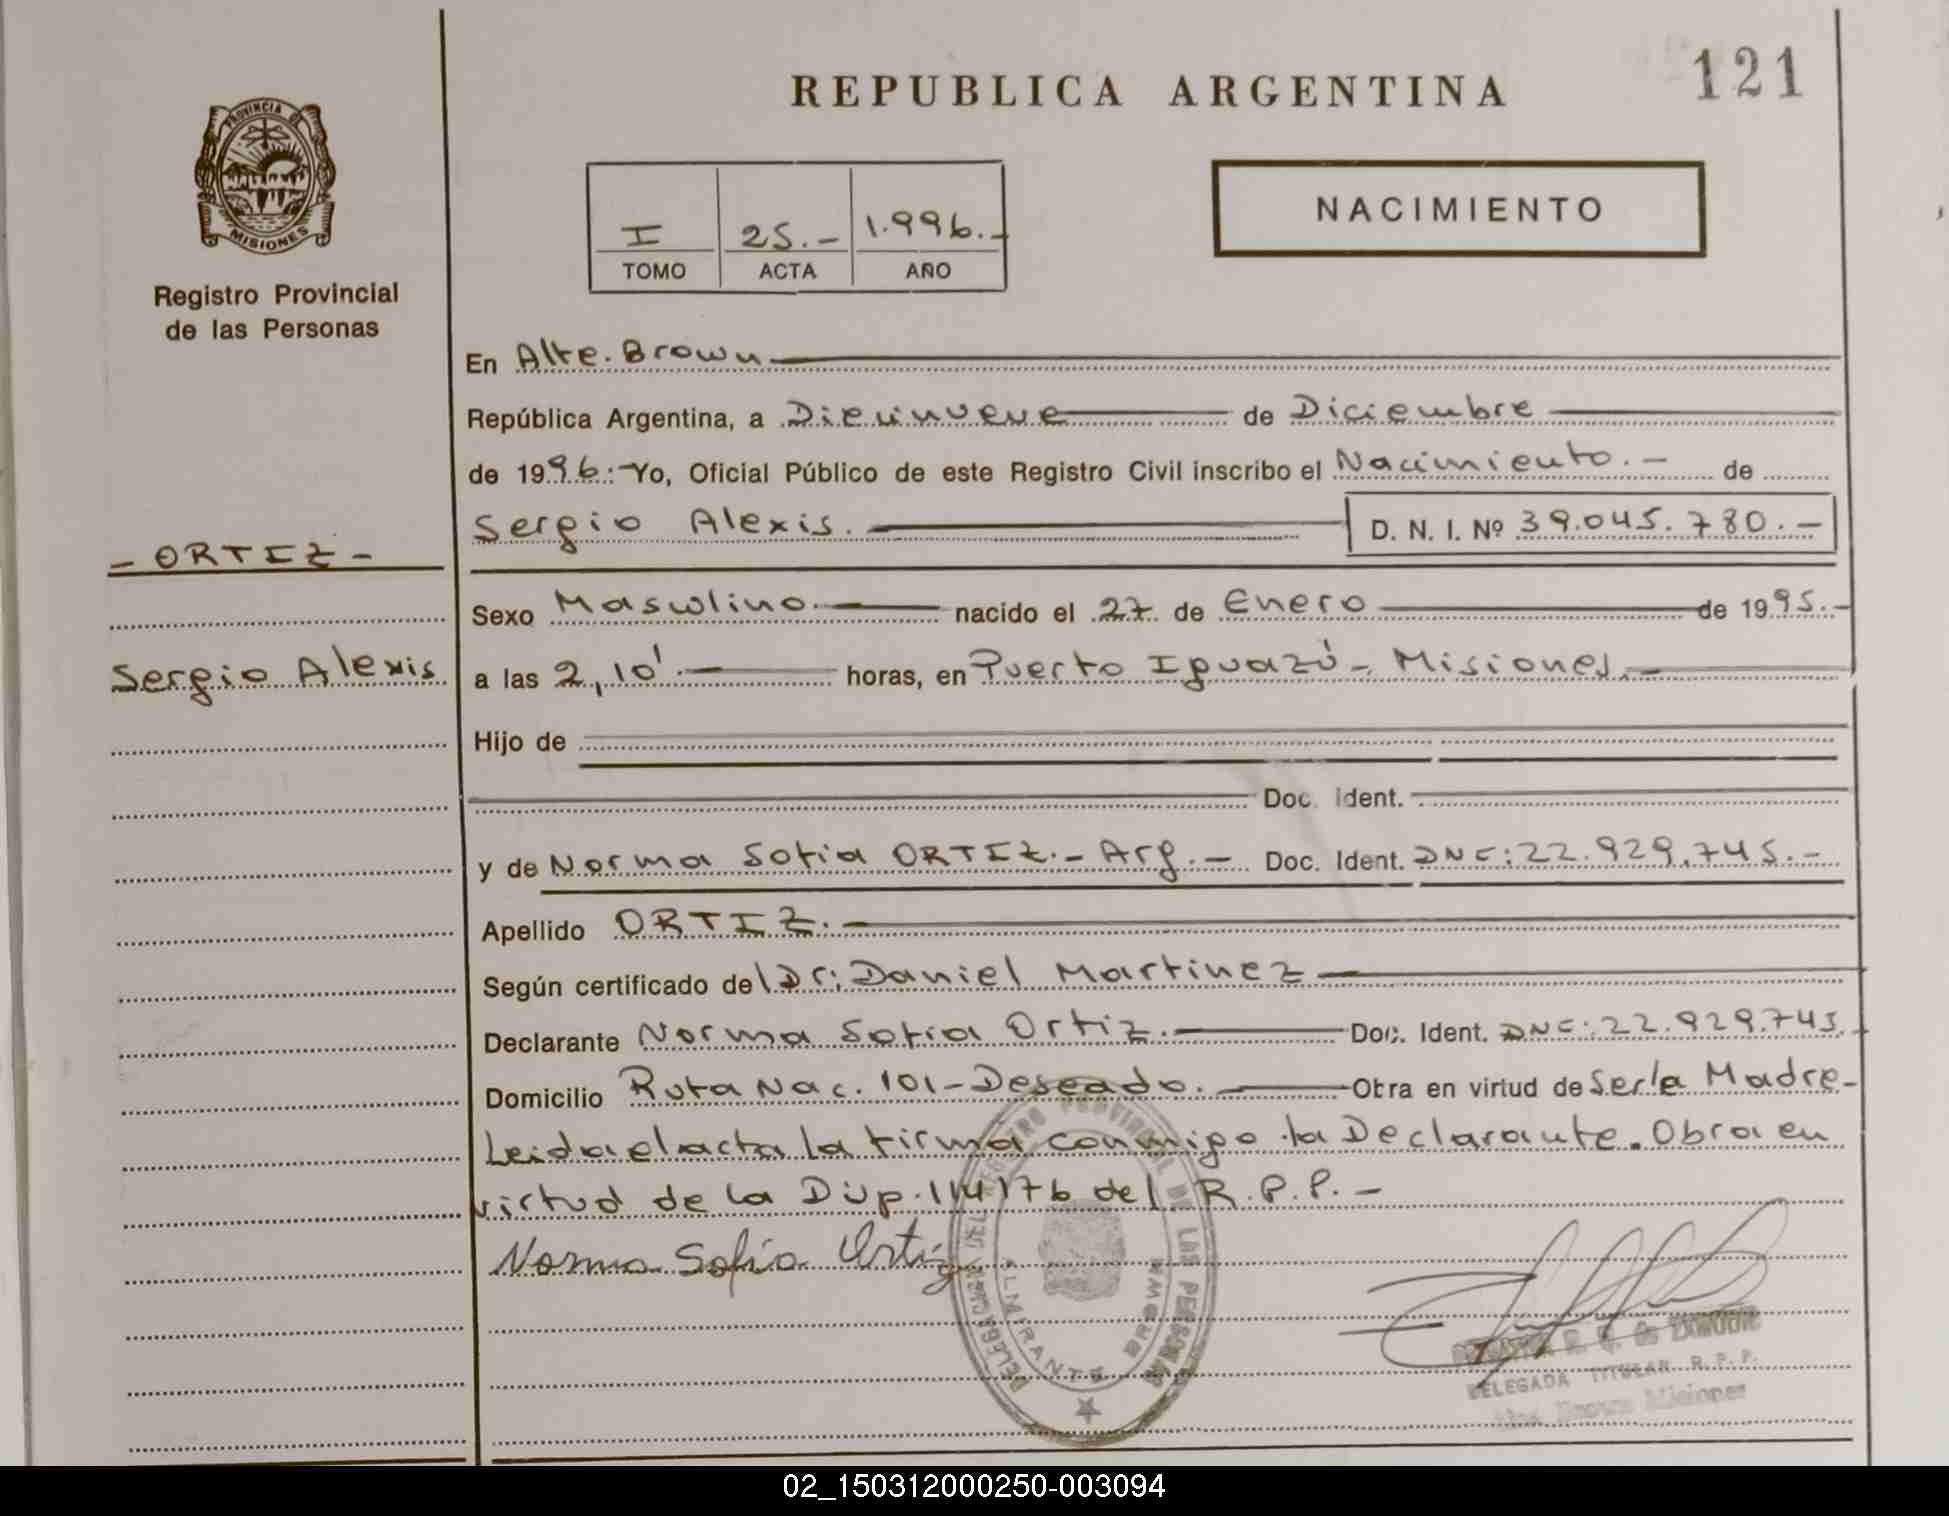 REPUBLICA ARGENTINA
121
PROVINCIA DE
MISIONES
Registro Provincial
de las Personas
I 25.- 1.996.-
TOMO ACTA AÑO
NACIMIENTO
En Alte. Brown
República Argentina, a Diecinueve de Diciembre
de 1996.- Yo, Oficial Público de este Registro Civil inscribo el Nacimiento.- de
Sergio Alexis. D. N. I. Nº 39.045.780.-
- ORTIZ -
Sexo Masculino. nacido el 27 de Enero de 1995.-
Sergio Alexis
a las 2,10' horas, en Puerto Iguazú - Misiones.-
Hijo de
Doc. Ident.
y de Norma Sofia ORTIZ.- Arg.- Doc. Ident. DNI: 22.929.745.-
Apellido ORTIZ.-
Según certificado del Dr: Daniel Martinez
Declarante Norma Sofia Ortiz. Doc. Ident. DNI: 22.929.745.-
Domicilio Ruta Nac. 101 - Deseado. Obra en virtud de Ser la Madre-
Leida el acta la firma conmigo la Declarante. Obra en
virtud de la Disp. 114/76 del R.P.P.-
Norma Sofía Ortiz
DELEGACION DEL REGISTRO PROVINCIAL DE LAS PERSONAS
ALMIRANTE BROWN
DELEGADA TITULAR R.P.P.
02_150312000250-003094